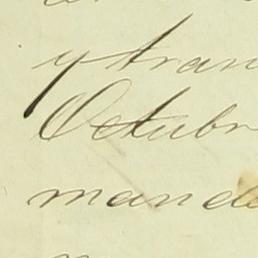 y tran
Octubr
mand